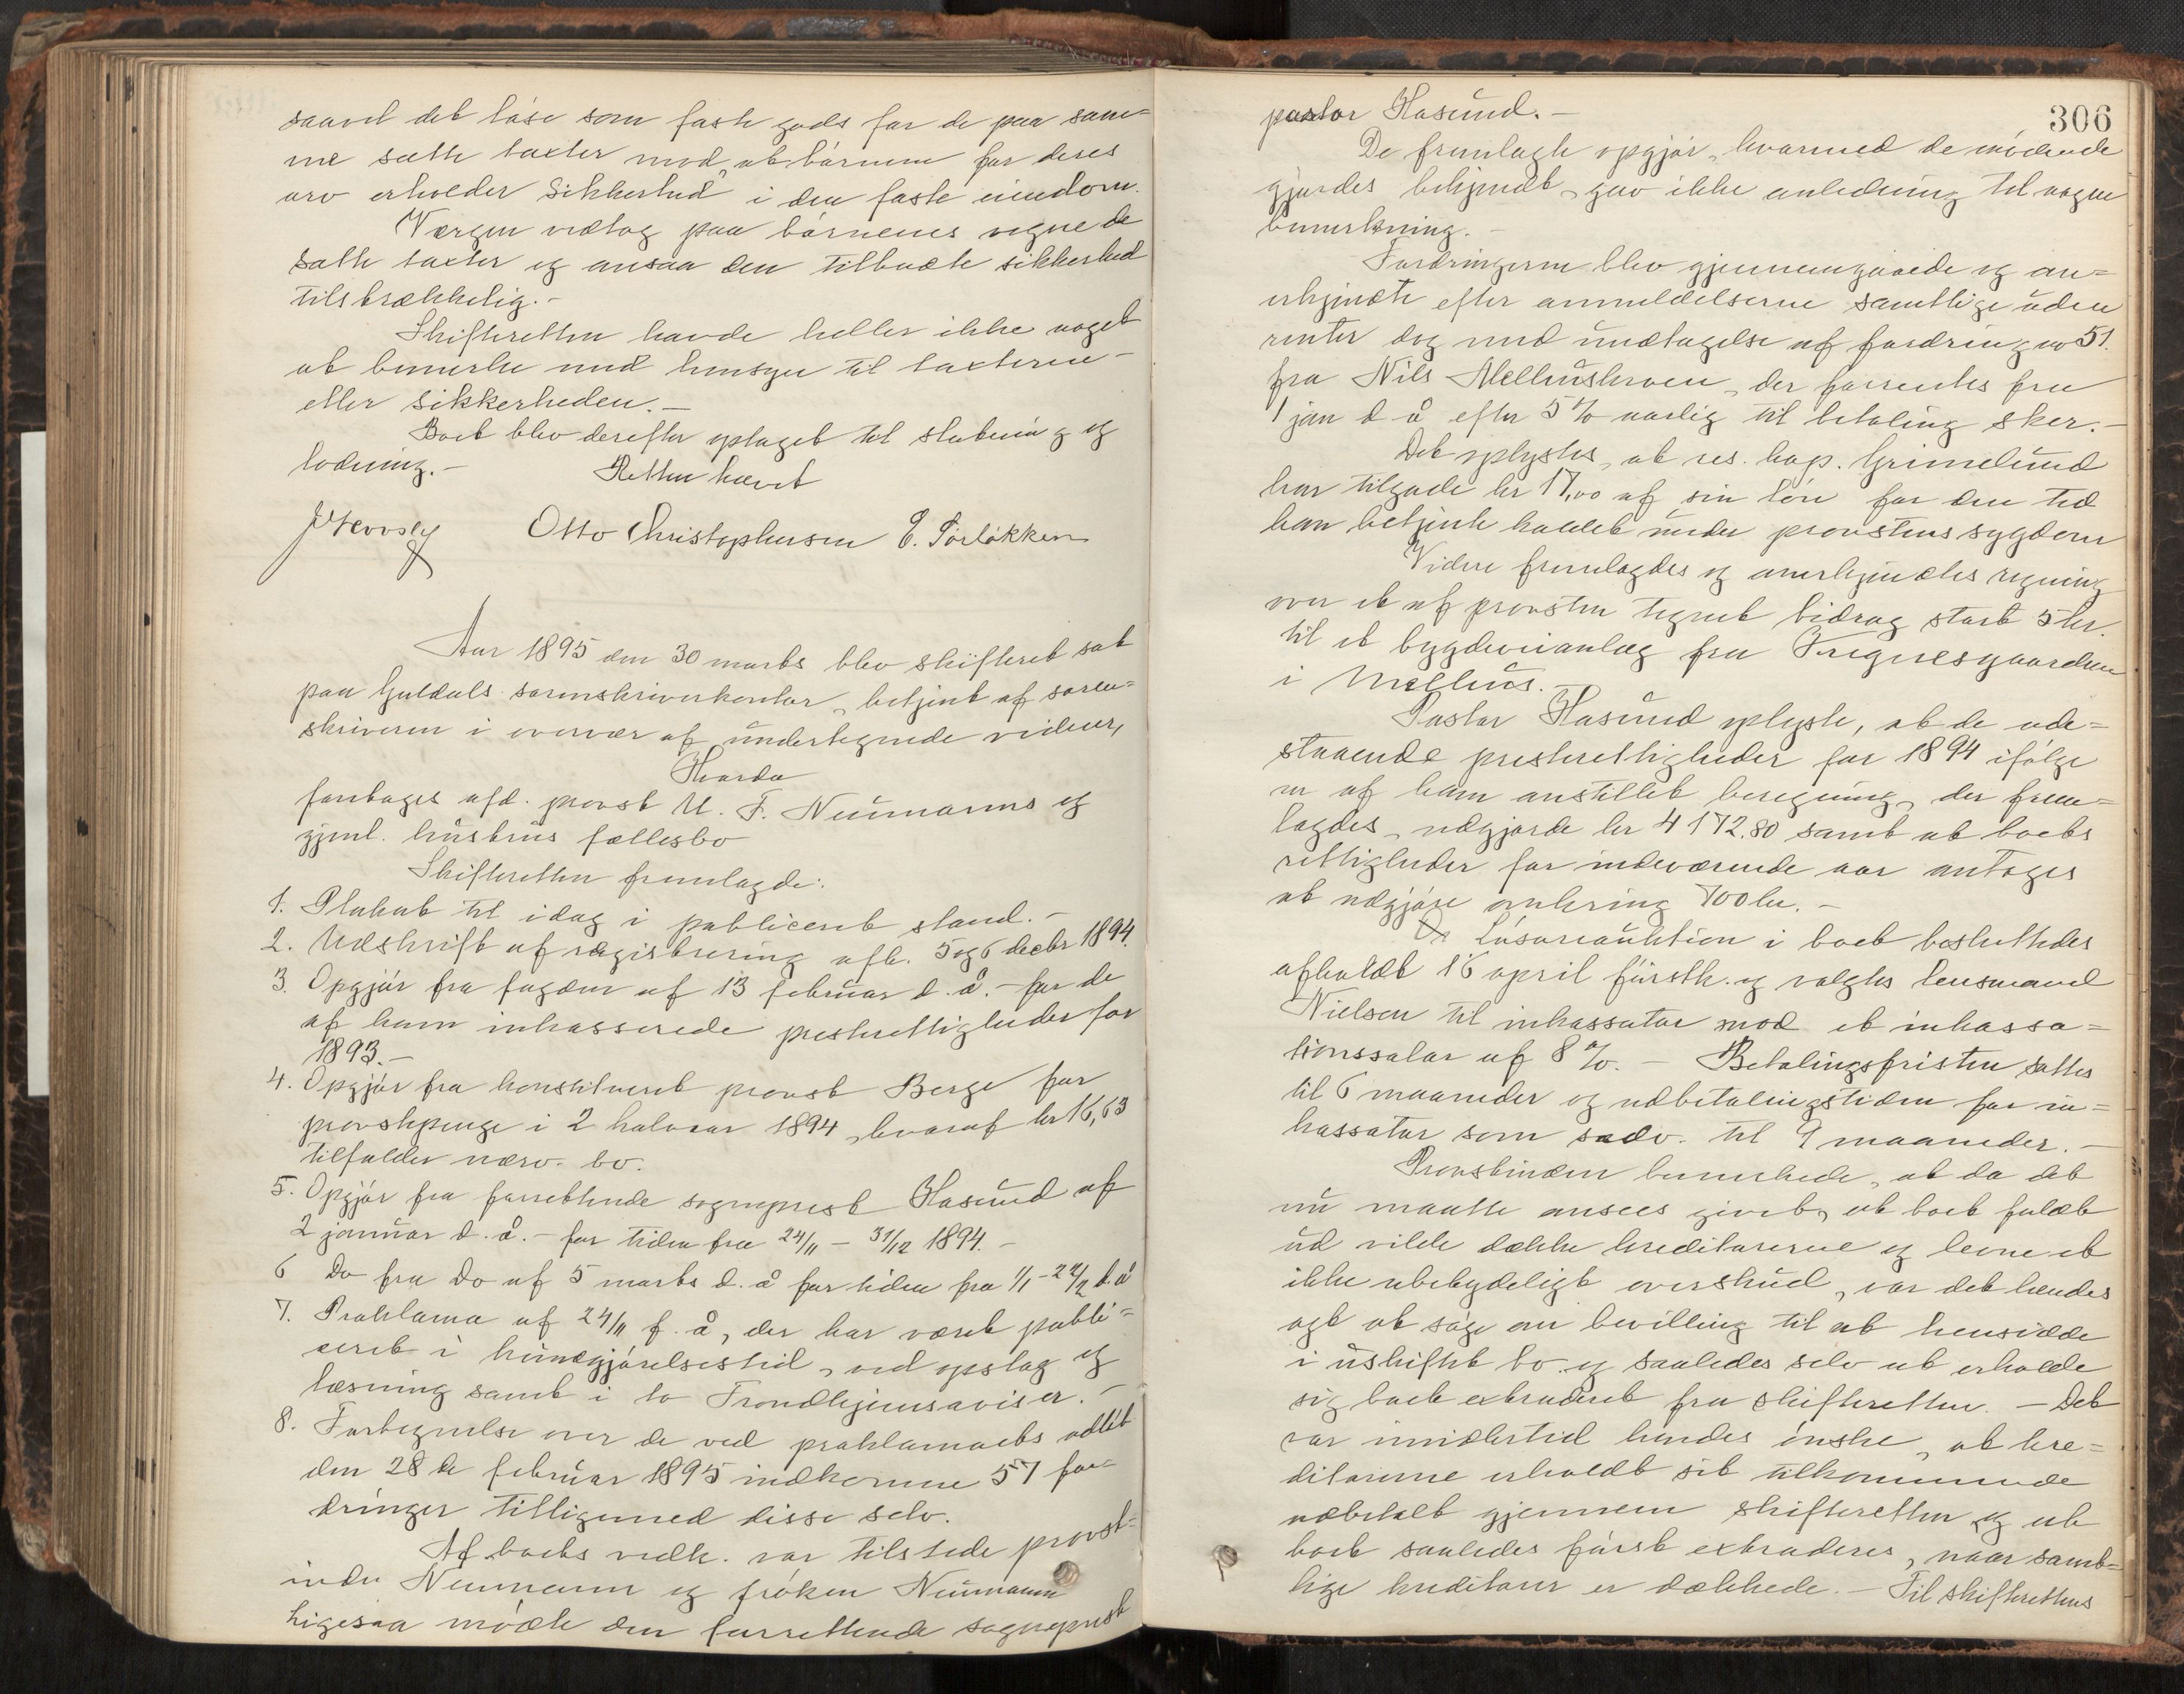 saavel det løse som faste gods for de paa sam-
me satte taxter mod, at børnene for deres
arv erholder sikkerhed i den faste eiendom.
Værgen vedtog paa børnenes vegne de
satte taxter og ansaa den tilbudte sikkerhed
tilstrækkelig.-
Skifteretten havde heller ikke noget
at bemerke med hensyn til taxterne
eller sikkerheden.-
Boet blev derefter optaget til slutning og
lodning.- Retten hævet
Otto Christophersen E. Sørløkken
Aar 1895 den 30 marts blev skifteret sat
paa Guldals sorenskriverkontor, betjent af soren-
skriveren i overvær af undertegnede vidner,
Hvorda
foretoges afd. provst U. F. Neumanns og
gjenl. hustrus fællesbo
Skifteretten fremlagde:
1. Plakat til idag i publiceret stand.-
2. Udskrift af registrering afh. 5 og 6 decbr 1894.
3. Opgjør fra fogden af 13 februar d. å.- for de
af ham inkasserede presterettigheder for
1893.-
4. Opgjør fra konstitueret provst Berge for
provstepenge i 2 halvaar 1894, hvoraf kr 16,63
tilfalder nærv. bo.
5. Opgjør fra forrettende sogneprest Hasund af
2 januar d. å.- for tiden fra 24/11 - 31/12 1894.-
6 Do fra Do af 5 marts d. å for tiden fra 1/1 - 24/2 d. å
7. Proklama af 24/11 f. å, der har været publi-
ceret i kundgjørelsestid, ved opslag og
læsning samt i to Trondhjemsaviser.-
8. Fortegnelse over de ved proklamaets udløb
den 28de februar 1895 indkomne 57 for-
dringer tilligemed disse selv.
Af boets vedk. var tilstede provst-
inde Neumann og frøken Neumann
ligesaa mødte den forrettende sogneprest
306
pastor Hasund.-
De fremlagte opgjør, hvormed de mødende
gjordes bekjendt, gav ikke anledning til nogen
bemerkning.-
Fordringerne blev gjennemgaaede og an-
erkjendte efter anmeldelserne samtlige uden
renter dog med undtagelse af fordring no 51.
fra Nils Melhuskroen, der forrentes fra
1 jan d å efter 5 % aarlig til betaling sker.-
Det oplystes, at res. kap. Grimelund
har tilgode kr 17,00 af sin løn for den tid
han betjente kaldet under provstens sygdom
Videre fremlagdes og anerkjendtes regning
over et af provsten tegnet bidrag stort 5 kr.
til et bygdeveianlæg fra Tregnesgaarden
i Melhus.-
Pastor Hasund oplyste, at de ude-
staaende presterettigheder for 1894 ifølge
en af ham anstillet beregning, der frem-
lagdes, udgjorde kr 4172.80 samt at boets
rettigheder for indeværende aar antoges
at udgjøre omkring 700 kr.-
Løsøreauktion i boet besluttedes
afholdt 16 april førstk. og valgtes lensmand
Nielsen til inkassator mod et inkassa-
tionssalar af 8 %.- Betalingsfristen sattes
til 6 maaneder og udbetalingstiden for in-
kassator som sædv. til 9 maaneder.-
Provstinden bemerkede, at da det
nu maatte ansees givet, at boet fuldt
ud vilde dække kreditorerne og levne et
ikke ubetydeligt overskud, var det hendes
agt at søge om bevilling til at hensidde
i uskiftet bo og saaledes selv at erholde
sig boet extraderet fra skifteretten.- Det
var imidlertid hendes ønske, at kre-
ditorerne erholdt sit tilkommende
udbetalt gjennem skifteretten og at
boet saaledes først extraderes, naar samt-
lige kreditorer er dækkede.- Til skifterettens